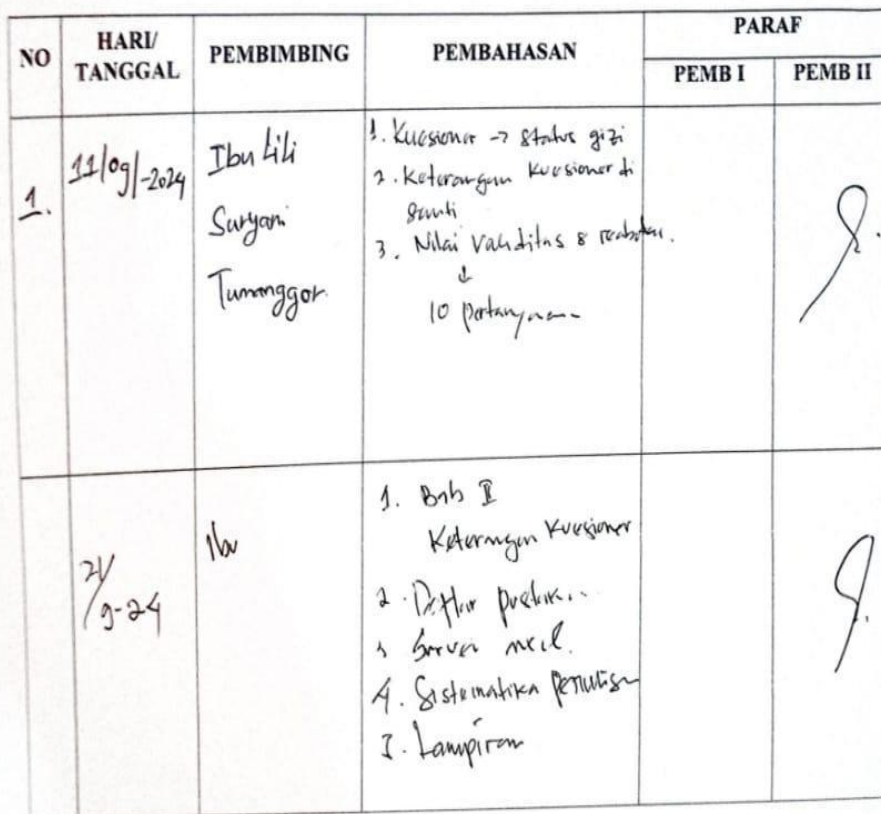 NO
HARI/
TANGGAL
PEMBIMBING
PEMBAHASAN
PARAF
PEMB I
PEMB II
1.
11/09/-2024
Ibu Lili
Suryani
Tumanggor.
1. Kuesioner -> status gizi
2. Keterangan kuesioner di
ganti
3. Nilai validitas &
↓
10 pertanyaan
/9-24
Ibu
1. Bab II
Keterangan kuesioner
2. Daftar pustaka
3 Survei
4. Sistematika penulisan
5. Lampiran